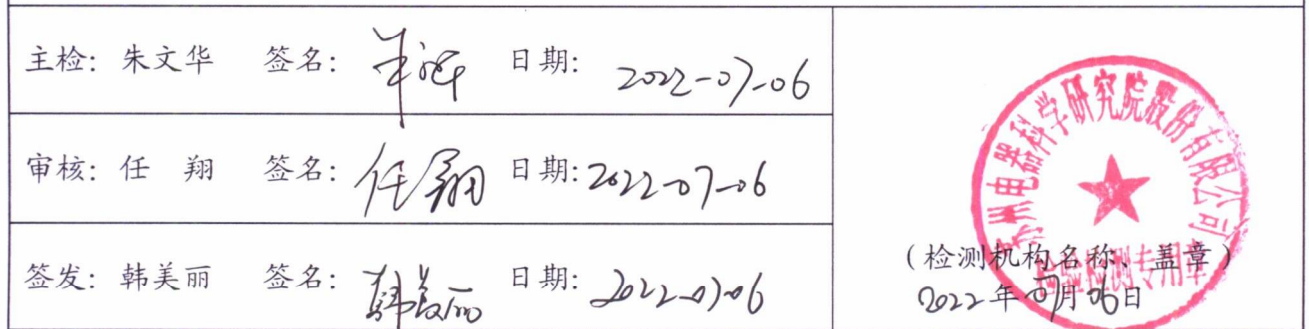 主检: 朱文华 签名: 朱文华 日期: 2022-07-06
审核: 任 翔 签名: 任翔 日期: 2022-07-06
签发: 韩美丽 签名: 韩美丽 日期: 2022-07-06
苏州电器科学研究院股份有限公司
检验检测专用章
(检测机构名称、盖章)
2022年07月06日